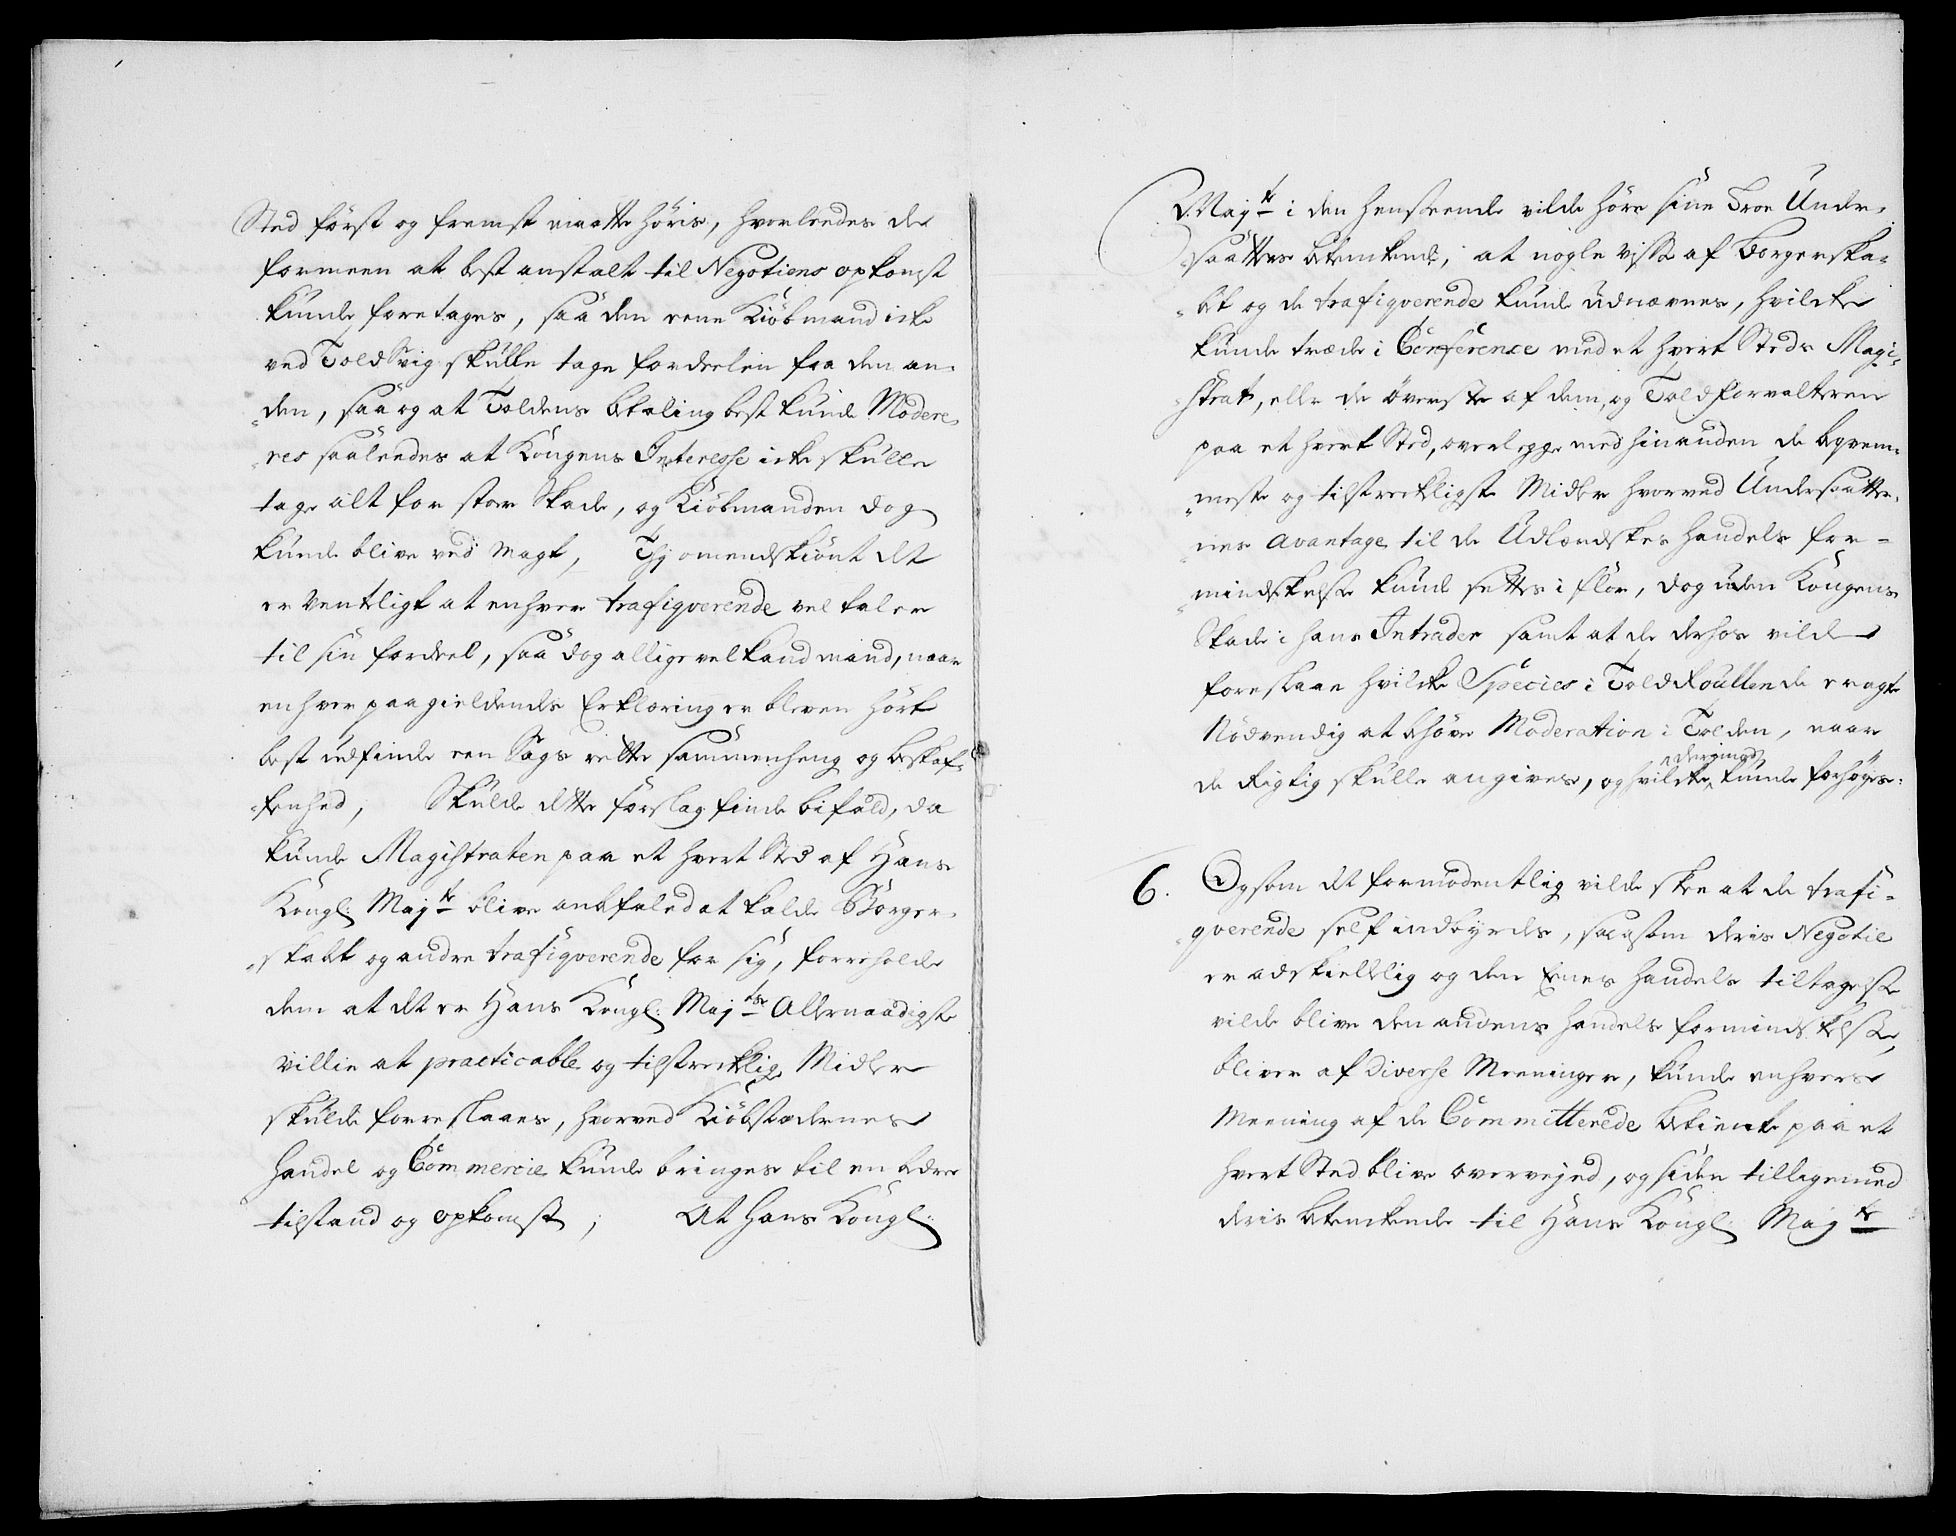 Sted först og fremst maatte höris, hvorleedes de
formeen at best anstalt til Negotiens opkomst
kunde foretages, saa den eene Kiöbmand icke
ved Told Svig skulle tage fordeelen fra den an-
den, saa og at Toldens betaling best kunde Modere-
res saaleedes at Kongens Interesse icke skulle
tage alt for stor Skade, og Kiöbmanden dog
kunde blive ved magt, Thj omendskiönt det
er Ventligt at enhver trafiqverende vel taler
til sin fordeel, saa dog alligevel kand mand, naar
enhver paagieldendes Erklæring er bleven hört
best udfinde een Sags rette sammenheng og beskaf-
fenhed, Skulde dette forslag finde bifald, da
kunde Magistraten paa et hvert Sted af Hans
Kongl: Majt blive anbefaled at kalde Borger-
skabt og andre trafiqverende for sig, foreholde
dem at det er Hans Kongl: Majts Allernaadigste
villie at practicable og tilstrecklige Midler
skulde foreslaaes, hvorved Kiöbstædernes
handel og Commercie kunde bringes til en bedre
tilstand og opkomst; At Hans Kongl:
Majt i den henseende vilde höre sine Troe Under-
saatters betenkende, at nogle visse af Borgerska-
bet og de trafiqverende kunde udnævnes, hvilcke
kunde træde i Conference med et hvert Steds Magi-
strat, eller de överste af dem, og Toldforvalteren
paa et hvert Sted, overlegge med hinanden de beqvem-
meste og tilstreckligste Midler hvorved Undersaatter-
nes Avantage til de Udlændskes handels for-
mindskelse kunde settes i flor, dog uden Kongens
Skade i hans Intrader samt at de derhos vilde
foreslaae hvilcke Species i Told Roullen de eragte
Nödvendig at behöve Moderation i Tolden, naar
de Rigtig skulle angives, og hvilcke derimod kunde forhöyes:
6. Og som det formodentlig vilde skee at de trafi-
qverende self indbyrdes, saasom deris Negotie
er adskiellig og den Eenes handels tiltagelse
vilde blive den andens handels formindskelse,
bliver af diverse Meeninger, kunde enhvers
Meening af de Committerede betiente paa et
hvert Sted blive overvejed, og siden tilligemed
deris betenkende til Hans Kongl: Majt